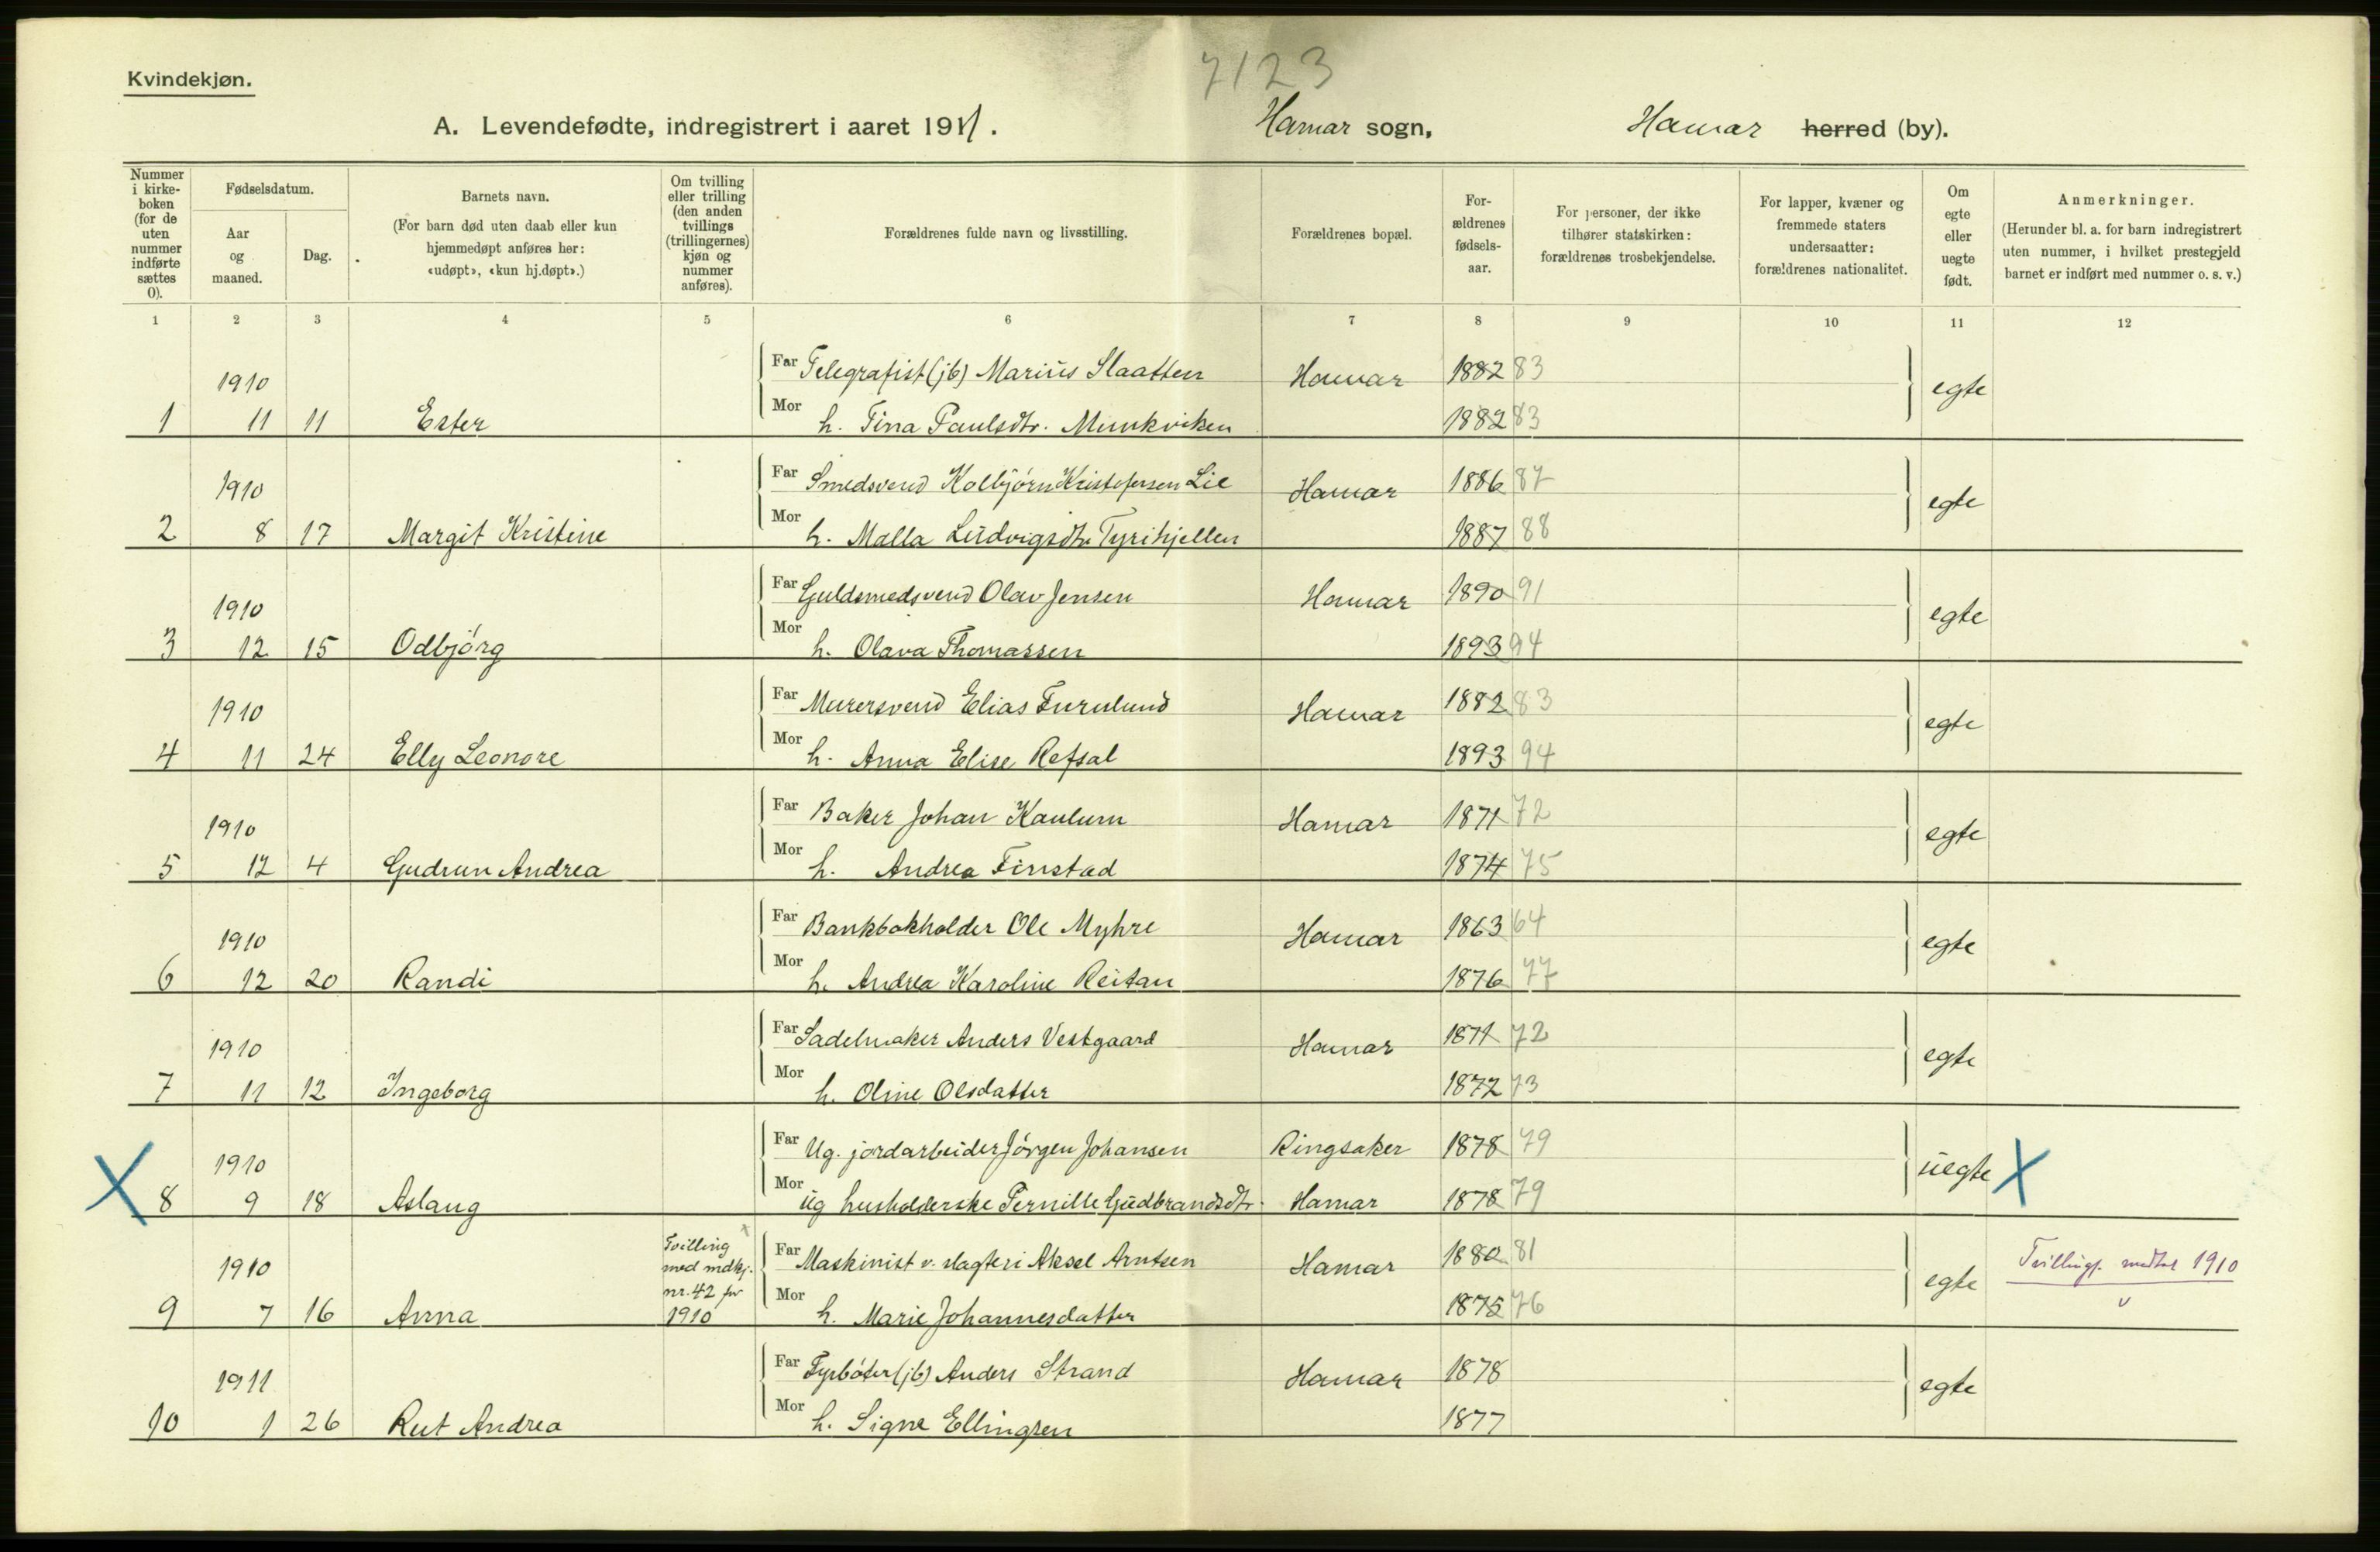 7123
Kvindekjøn.
A. Levendefødte, indregistrert i aaret 1911. Hamar sogn, Hamar herred (by).
Nummer i kirkeboken (for de uten nummer indførte sættes 0).
Fødselsdatum.
Aar og maaned.
Dag.
Barnets navn.
(For barn død uten daab eller kun hjemmedøpt anføres her: «udøpt», «kun hj.døpt».)
Om tvilling eller trilling (den anden tvillings (trillingernes) kjøn og nummer anføres).
Forældrenes fulde navn og livsstilling.
Forældrenes bopæl.
Forældrenes fødselsaar.
For personer, der ikke tilhører statskirken: forældrenes trosbekjendelse.
For lapper, kvæner og fremmede staters undersaatter: forældrenes nationalitet.
Om egte eller uegte født.
Anmerkninger.
(Herunder bl. a. for barn indregistrert uten nummer, i hvilket prestegjeld barnet er indført med nummer o. s. v.)
1 2 3 4 5 6 7 8 9 10 11 12
1910 Far Telegrafist (jb) Marius Slaatten Hamar 1882 83 egte
1 11 11 Ester Mor h. Tina Paulsdtr. Munkviken 1882 83
1910 Far Smedsvend Kolbjørn Kristofersen Lie Hamar 1886 87 egte
2 8 17 Margit Kristine Mor h. Malla Ludvigsdtr Tyrihjellen 1887 88
1910 Far Guldsmedsvend Olav Jensen Hamar 1890 91 egte
3 12 15 Odbjörg Mor h. Olava Thomassen 1893 94
1910 Far Murersvend Elias Furulund Hamar 1882 83 egte
4 11 24 Elly Leonore Mor h. Anna Elise Refsal 1893 94
1910 Far Baker Johan Kaulum Hamar 1871 72 egte
5 12 4 Gudrun Andrea Mor h. Andrea Finstad 1874 75
1910 Far Bankbokholder Ole Myhre Hamar 1863 64 egte
6 12 20 Randi Mor h. Andrea Karoline Reitan 1876 77
1910 Far Sadelmaker Anders Vestgaard Hamar 1871 72 egte
7 11 12 Ingeborg Mor h. Oline Olsdatter 1872 73
1910 Far Ug. jordarbeider Jörgen Johansen Ringsaker 1878 79 uegte X
X 8 9 18 Aslaug Mor ug husholderske Pernille Gudbrandsdtr. Hamar 1878 79
1910 Tvilling med mdkj. nr. 42 for 1910 Far Maskinist v. slagteri Aksel Arntsen Hamar 1880 81 egte Tvillingf. medtat 1910
9 7 16 Anna Mor h. Marie Johannesdatter 1875 76
1911 Far Fyrböter (jb) Anders Strand Hamar 1878 egte
10 1 26 Rut Andrea Mor h. Signe Ellingsen 1877